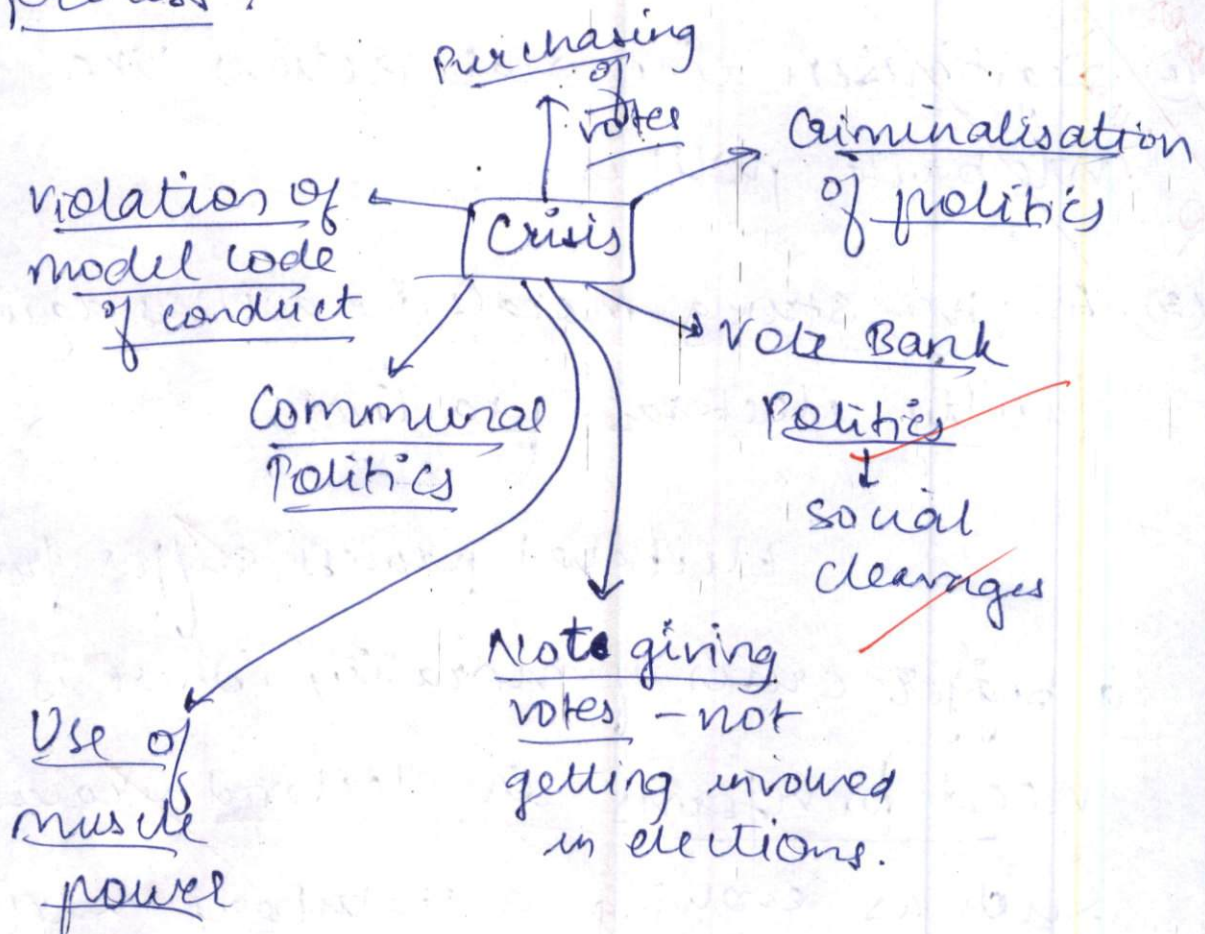 process :
Purchasing
of
votes
Criminalisation
of politics
violation of
model code
of conduct
Crisis
Vote Bank
Politics
social
cleavages
Communal
Politics
Note giving
votes - not
getting involved
in elections.
Use of
muscle
power